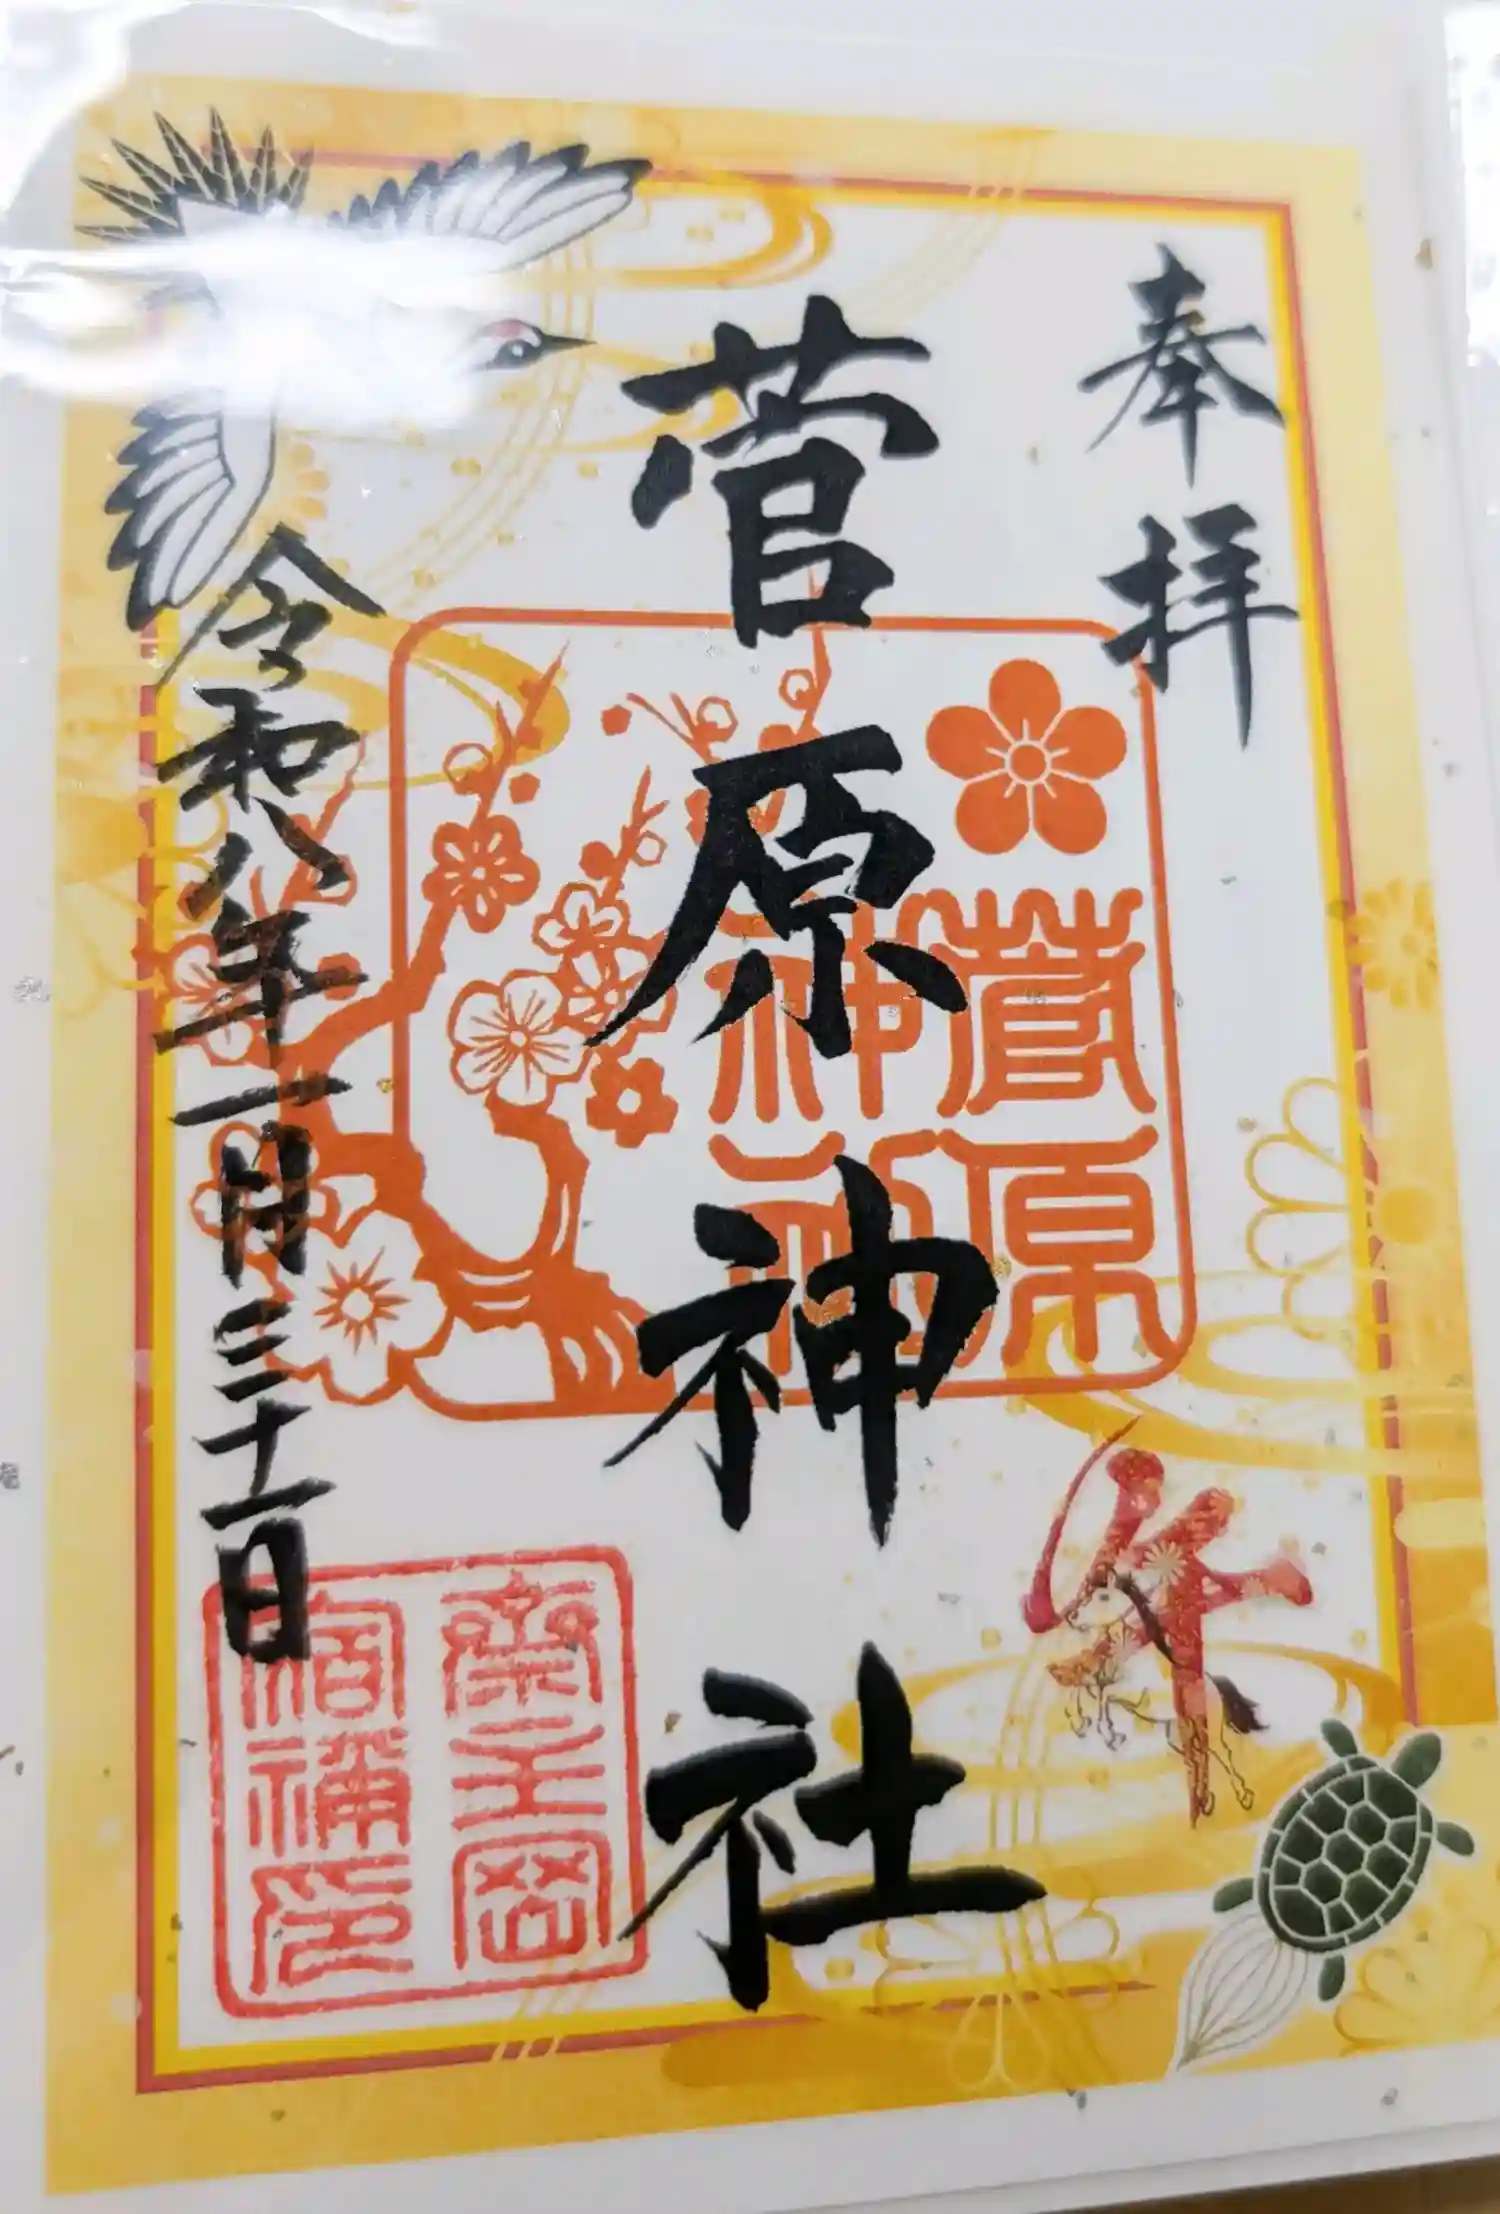 奉拝
菅原神社
菅原
神社
午
令和八年一月三十一日